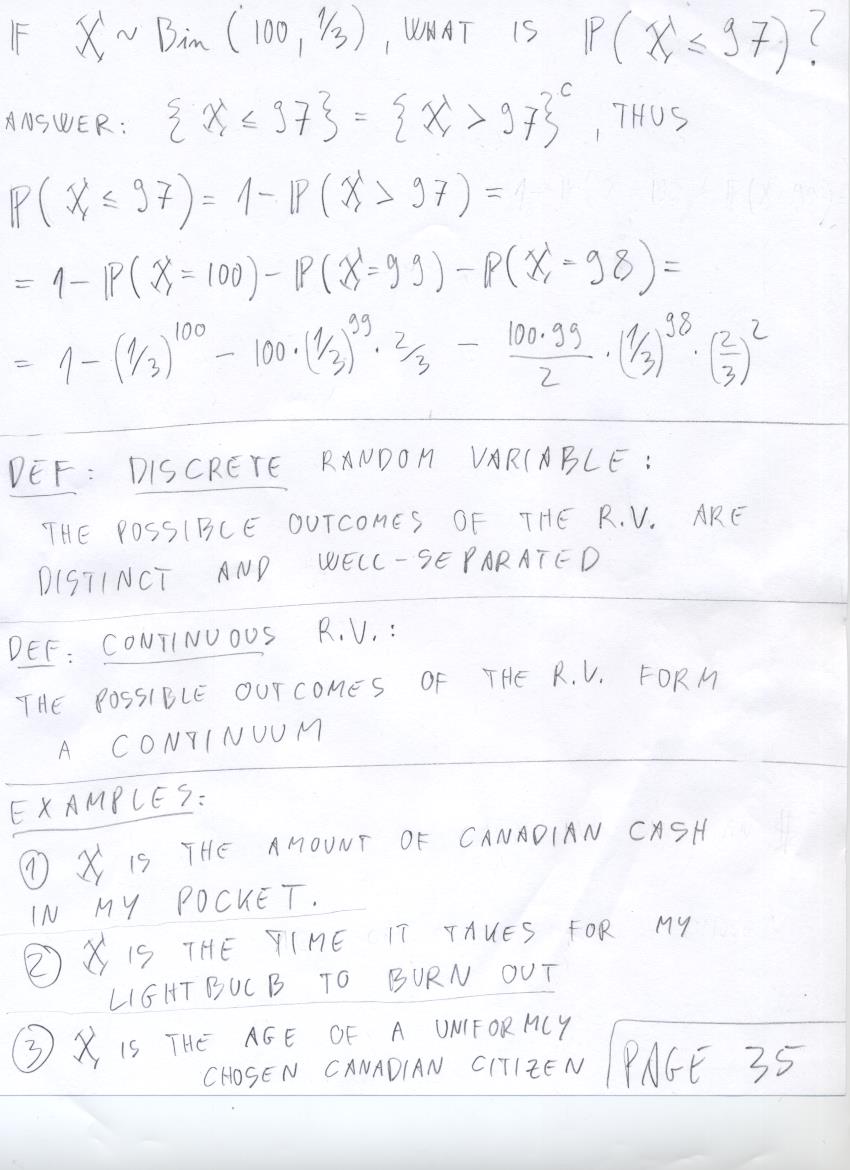 IF X ~ Bin (100, 1/3), WHAT IS ℙ(X ≤ 97)?
ANSWER: {X ≤ 97} = {X > 97}^c, THUS
ℙ(X ≤ 97) = 1 - ℙ(X > 97) =
= 1 - ℙ(X = 100) - ℙ(X = 99) - ℙ(X = 98) =
= 1 - (1/3)^100 - 100·(1/3)^99 · 2/3 - 100·99/2 · (1/3)^98 · (2/3)^2
DEF: DISCRETE RANDOM VARIABLE:
THE POSSIBLE OUTCOMES OF THE R.V. ARE
DISTINCT AND WELL-SEPARATED
DEF: CONTINUOUS R.V.:
THE POSSIBLE OUTCOMES OF THE R.V. FORM
A CONTINUUM
EXAMPLES:
① X IS THE AMOUNT OF CANADIAN CASH
IN MY POCKET.
② X IS THE TIME IT TAKES FOR MY
LIGHTBULB TO BURN OUT
③ X IS THE AGE OF A UNIFORMLY
CHOSEN CANADIAN CITIZEN
PAGE 35